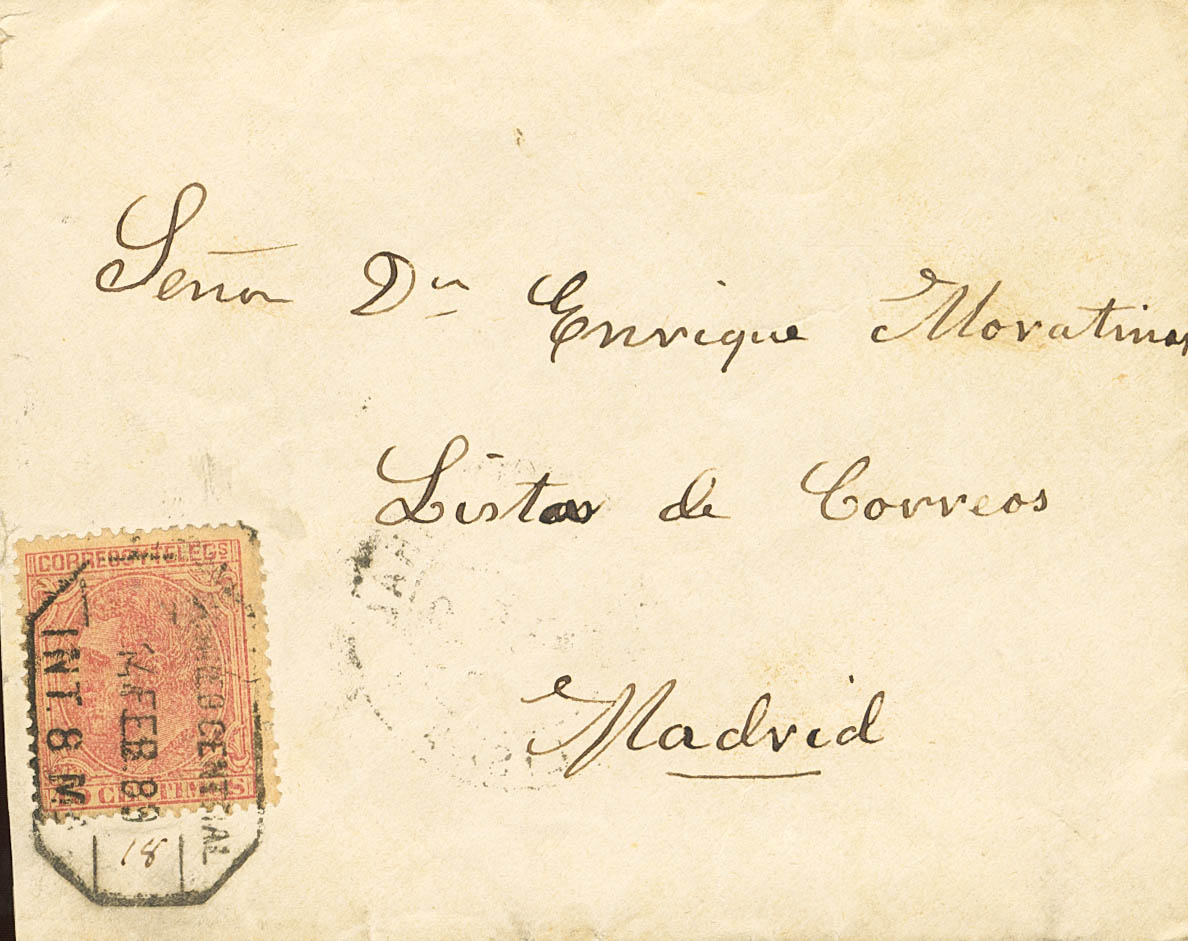 Señor Dn Enrique Moratinos
Listas de Correos
Madrid
CORREOS Y TELEGS
CENTRAL
14 FEB 89
INT. 8 M
18